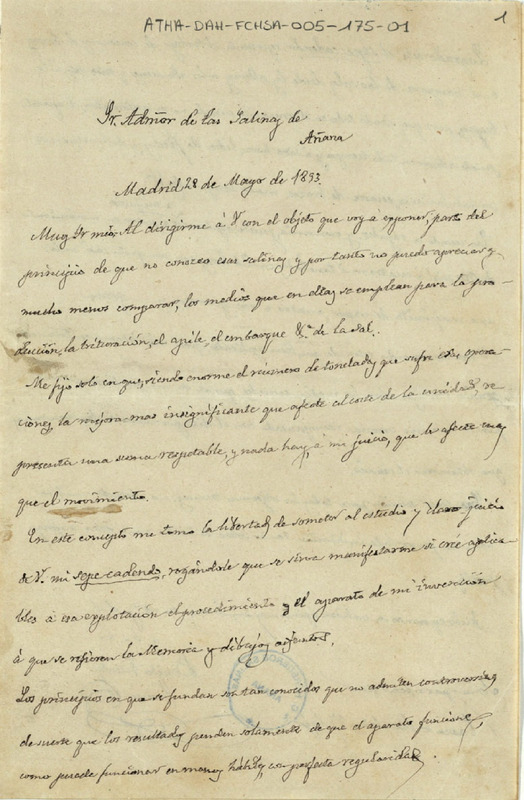 ATHA-DAH-FCHSA-005-175-01
1
Sr. Admor de las Salinas de
Añana
Madrid 28 de Mayo de 1893.
Muy Sr mio: Al dirigirme á V con el objeto que voy a exponer, parto del
principio de que no conozco esas salinas y por tanto no puedo apreciar y
mucho menos comparar, los medios que en ellas se emplean para la pro-
ducción, la trituración, el apile, el embarque &.ª de la sal.
Me fijo solo en que, siendo enorme el número de toneladas que sufre estas opera-
ciones, la mejora mas insignificante que afecte al coste de la unidad, re-
presenta una suma respetable, y nada hay, á mi juicio, que le afecte mas
que el movimiento.
En este concepto me tomo la libertad de someter al estudio y claro juicio
de V. mi sepe cadendo, rogándole que se sirva manifestarme si cree aplica-
bles á esa explotación el procedimiento y el aparato de mi invención
á que se refieren la Memoria y dibujos adjuntos.
Los principios en que se fundan son tan conocidos que no admiten controversia,
de suerte que los resultados penden solamente de que el aparato funcione
como puede funcionar en manos hábiles, con perfecta regularidad.